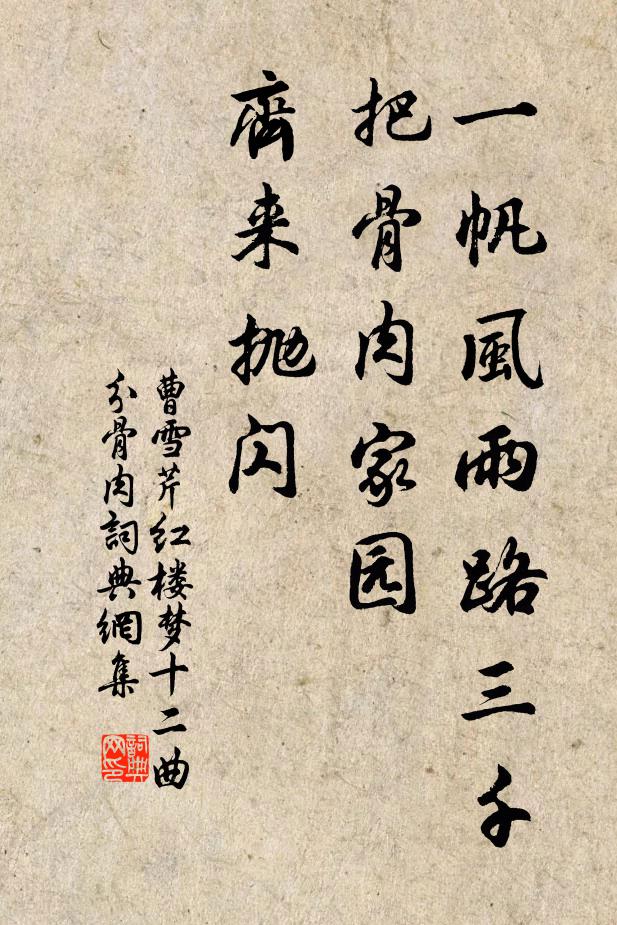 一帆風雨路三千
把骨肉家园
齊来抛闪
曹雪芹红楼梦十二曲
分骨肉詞典網集
詞典
网印